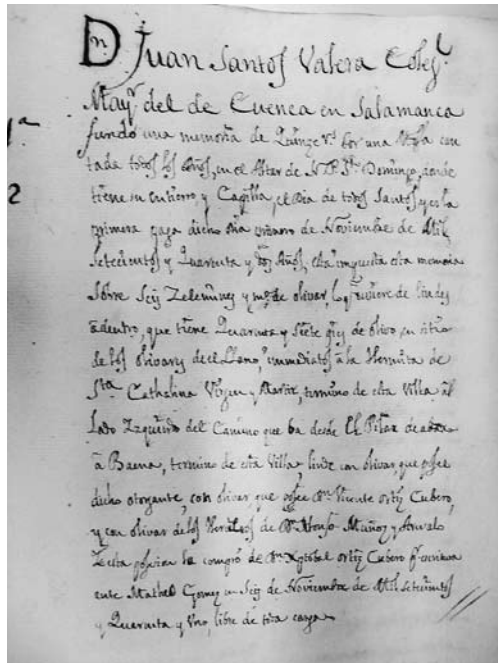 Dn Juan Santos Valera Colegl
Mayr del de Cuenca en Salamanca
1a
fundo una memoria de Quinze rs por una Missa can
tada todos los años, en el Altar de N. P. Sto Domingo, donde
2
tiene su entierro, y Capilla, el dia de todos Santos, y es la
primera paga dicho dia primero de Noviembre de Mil
setecientos y Quarenta y dos Años, esta impuesta esta memoria
sobre seis Zelemines y mo de olivar, lo q. tuviere de lindes
adentro, que tiene Quarenta y siete pies de olivo, en sitio
de los olivares de el Llano, immediatos â la Hermita de
Sta Cathalina Virgen y Martir, termino de esta Villa âl
Lado Izquierdo del Camino que ba desde El Pilar de abaxo
â Baena, termino de esta Villa, linde con olivar, que posee
dicho otorgante, con olivar, que posee Dn Vicente ortiz Cubero,
y con olivar de los Herederos de Dn Alonso Muñoz y Arevalo
esta posesion la compró de Dn Xptobal ortiz Cubero pr escritura
ente Matheo Gomez en seis de Noviembre de Mil setecientos
y Quarenta y Uno, libre de otra carga